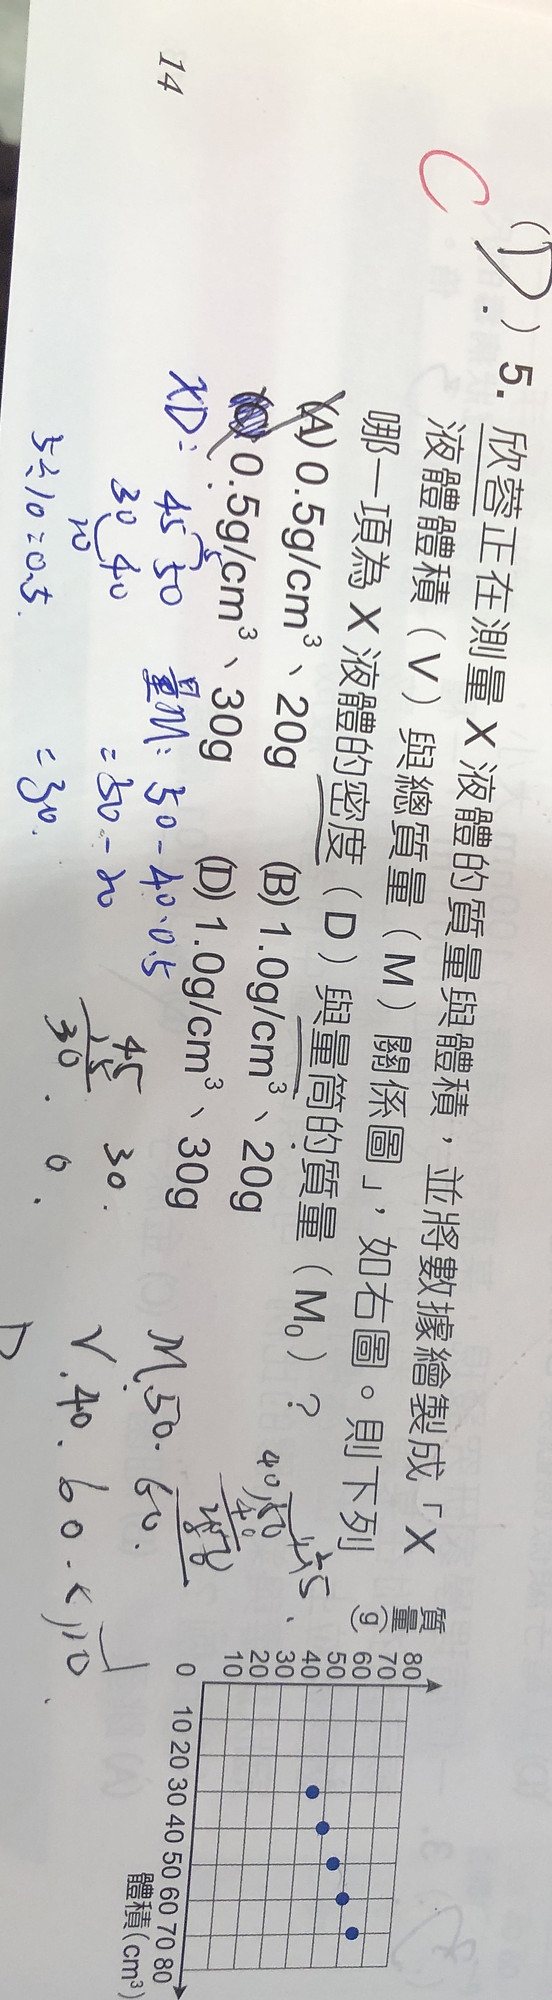 14
C
(D.) 5. 欣蓉正在測量 X 液體的質量與體積，並將數據繪製成「X
液體體積（V）與總質量（M）關係圖」，如右圖。則下列
哪一項為 X 液體的密度（D）與量筒的質量（M₀）？
(A) 0.5g/cm³、20g (B) 1.0g/cm³、20g
(C) 0.5g/cm³、30g (D) 1.0g/cm³、30g
XD: 45 50 量M: 50-40·0.5
30 40 =50-20
10
5÷10=0.5. =30.
45 30.
15
30. 0.
M.50. 60.
V.40. 60.
D
質量(g)
80
70
60
50
40
30
20
10
0 10 20 30 40 50 60 70 80
體積(cm³)